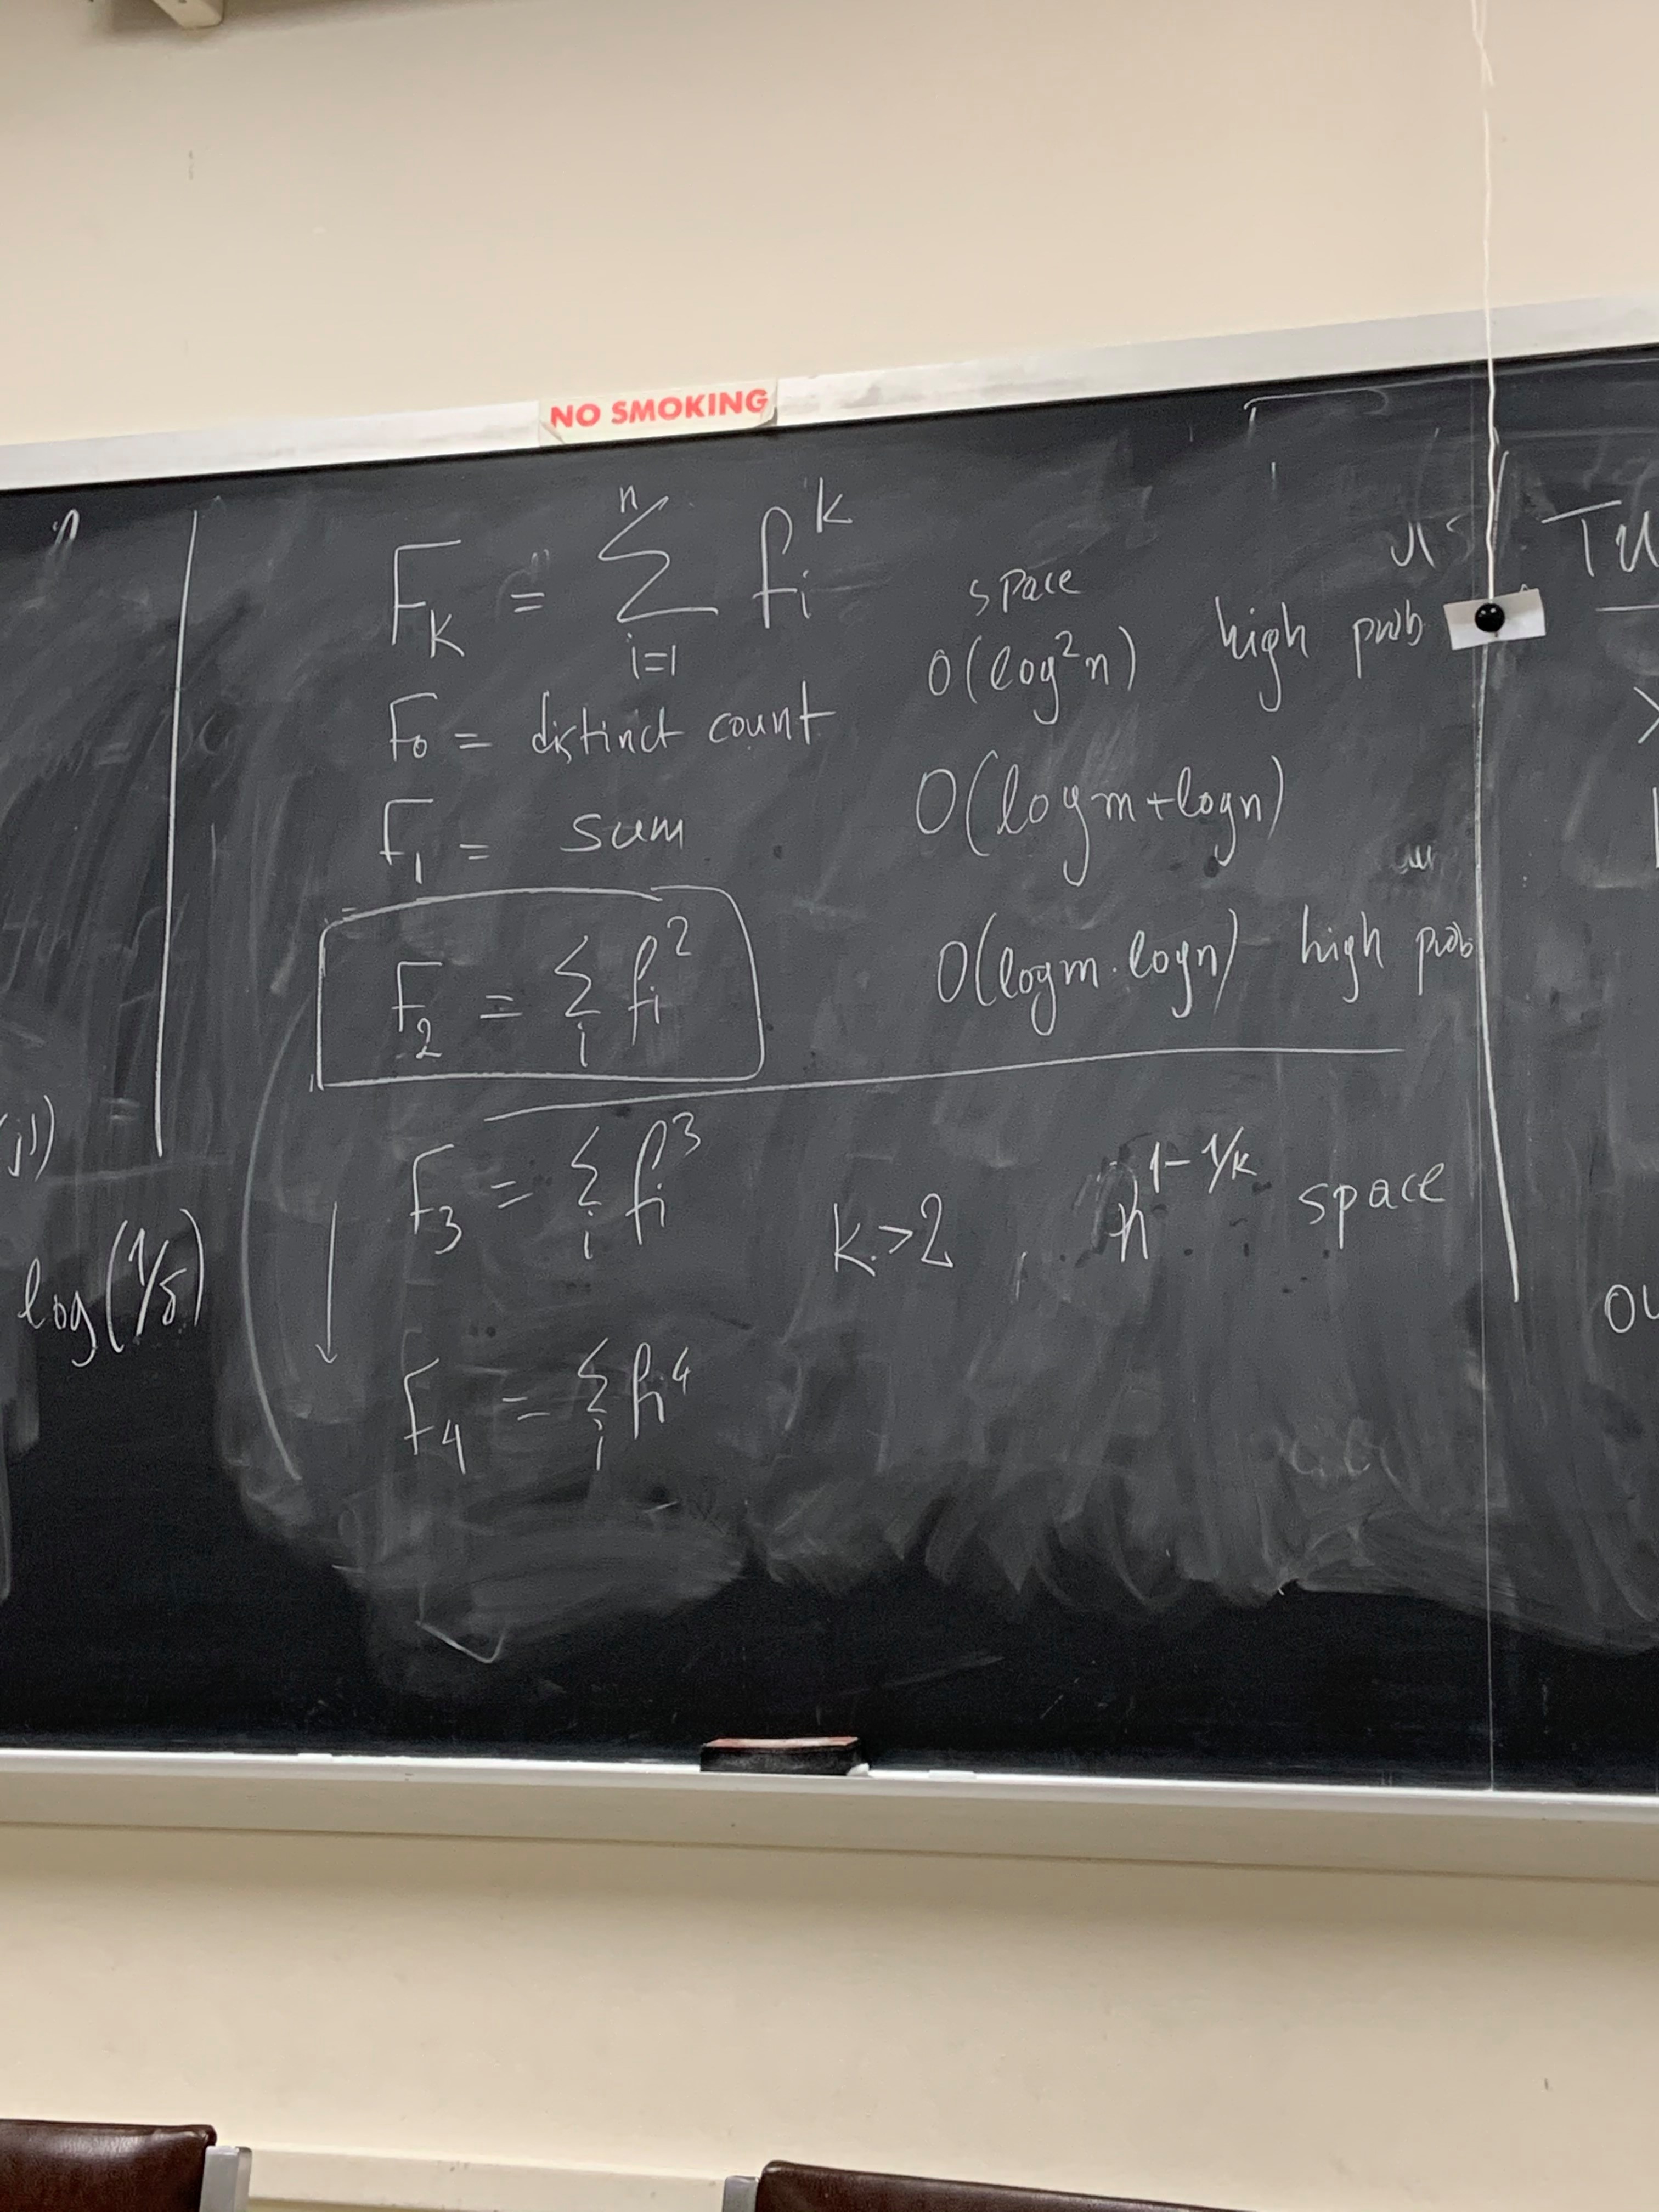 NO SMOKING
F_K = \sum_{i=1}^{n} f_i^k
space
F_0 = distinct count O(log²n) high prob
F_1 = sum O(log m + log n)
F_2 = \sum_i f_i^2 O(log m · log n) high prob
F_3 = \sum_i f_i^3 k > 2, n^{1-1/k} space
F_4 = \sum_i f_i^4
(j')
log(1/δ)